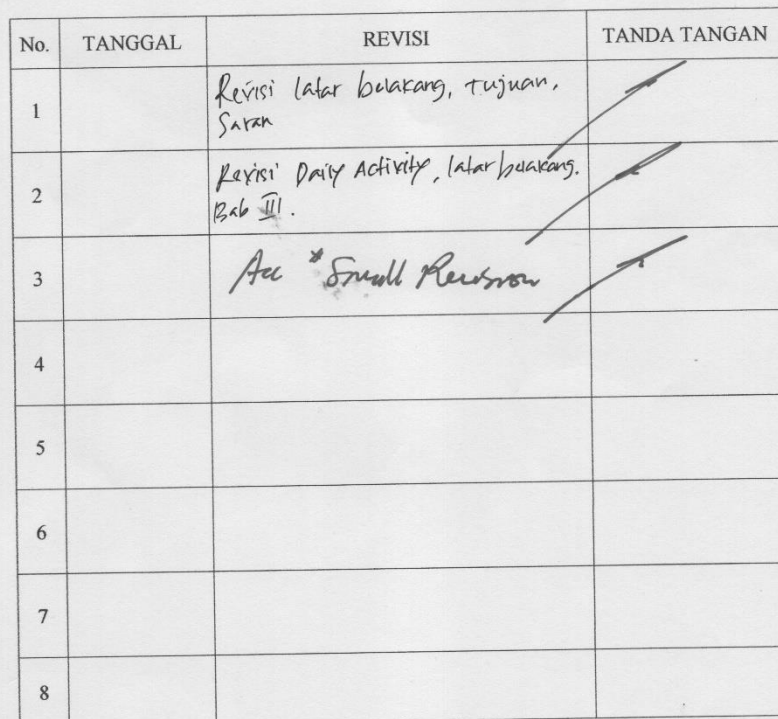 No. TANGGAL REVISI TANDA TANGAN
1 Revisi latar belakang, tujuan,
Saran
2 Revisi Daily Activity, latar belakang.
Bab III.
3 Acc * Small Revision
4
5
6
7
8